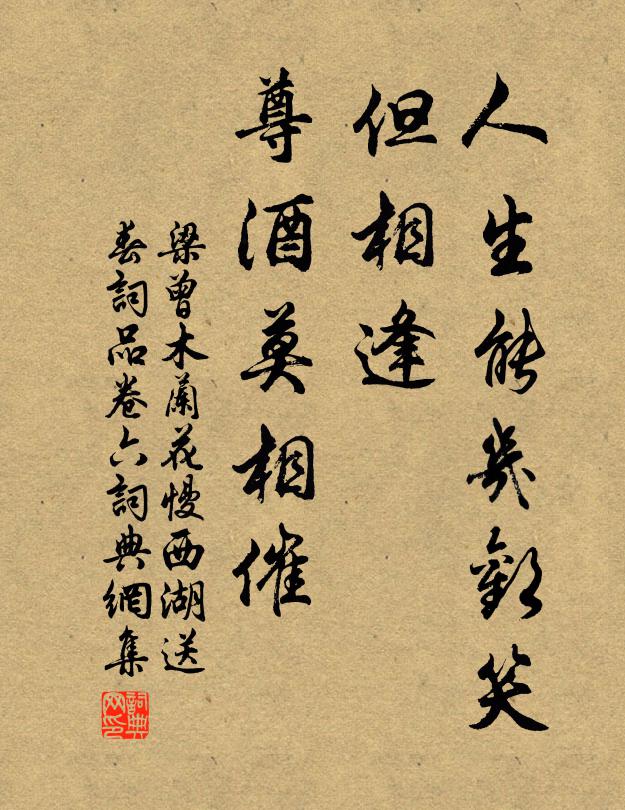 人生能幾歡笑
但相逢
尊酒莫相催
梁曾木蘭花慢西湖送
春詞品卷六詞典網集
詞典网印